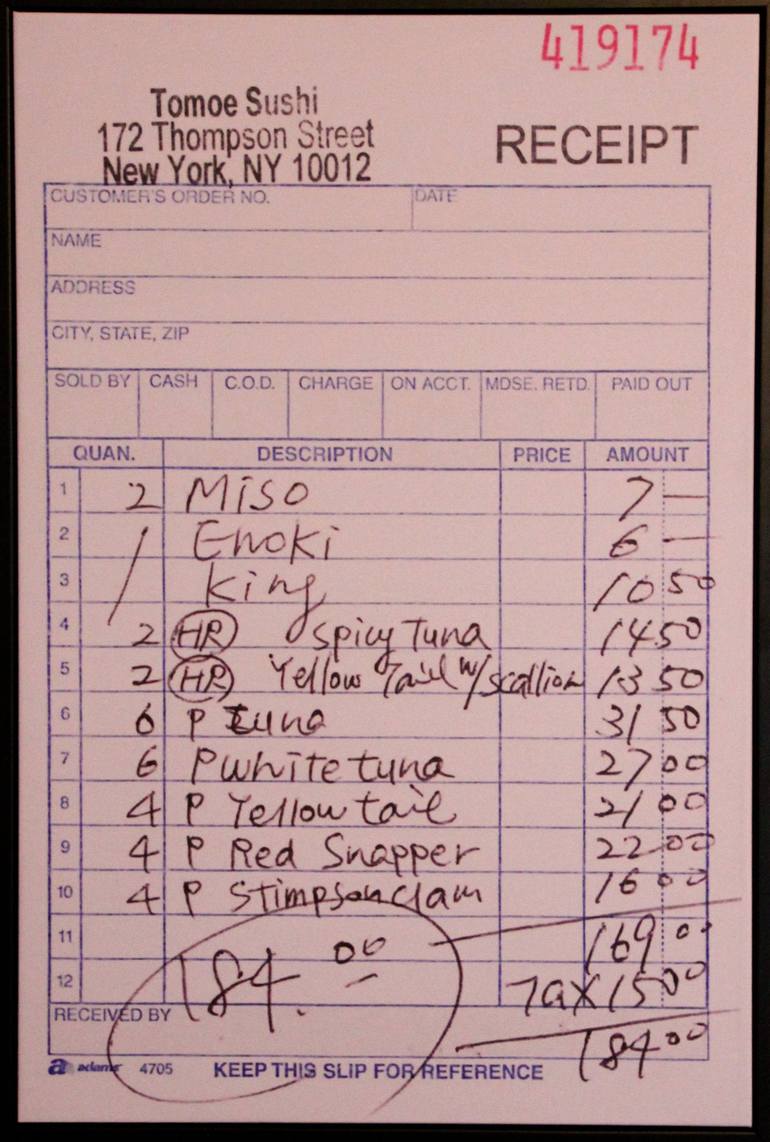 419174
Tomoe Sushi
172 Thompson Street
New York, NY 10012
RECEIPT
CUSTOMER'S ORDER NO. DATE
NAME
ADDRESS
CITY, STATE, ZIP
SOLD BY CASH C.O.D. CHARGE ON ACCT. MDSE. RETD. PAID OUT
QUAN. DESCRIPTION PRICE AMOUNT
1 2 Miso 7 —
2 1 Enoki 6 —
3 King 10 50
4 2 HR spicy Tuna 14 50
5 2 HR Yellow Tail w/scallion 13 50
6 6 P tuna 31 50
7 6 P white tuna 27 00
8 4 P Yellow tail 21 00
9 4 P Red Snapper 22 00
10 4 P Stimpson clam 16 00
11 169 00
12 184.00 Tax 15 00
RECEIVED BY 184 00
a adams 4705 KEEP THIS SLIP FOR REFERENCE